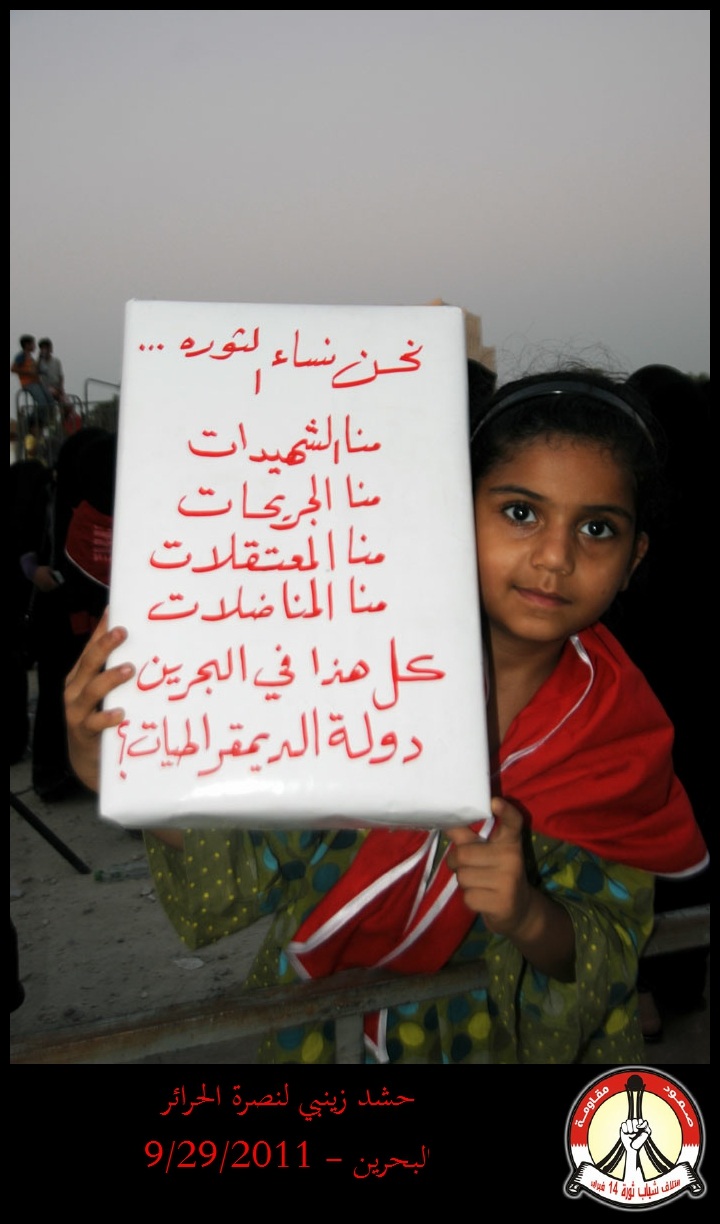 نحن نساء الثوره ...
منا الشهيدات
منا الجريحات
منا المعتقلات
منا المناضلات
كل هذا في البحرين
دولة الديمقراطيات؟
حشد زينبي لنصرة الحرائر
البحرين – 9/29/2011
صمود مقاومة
ائتلاف شباب ثورة 14 فبراير